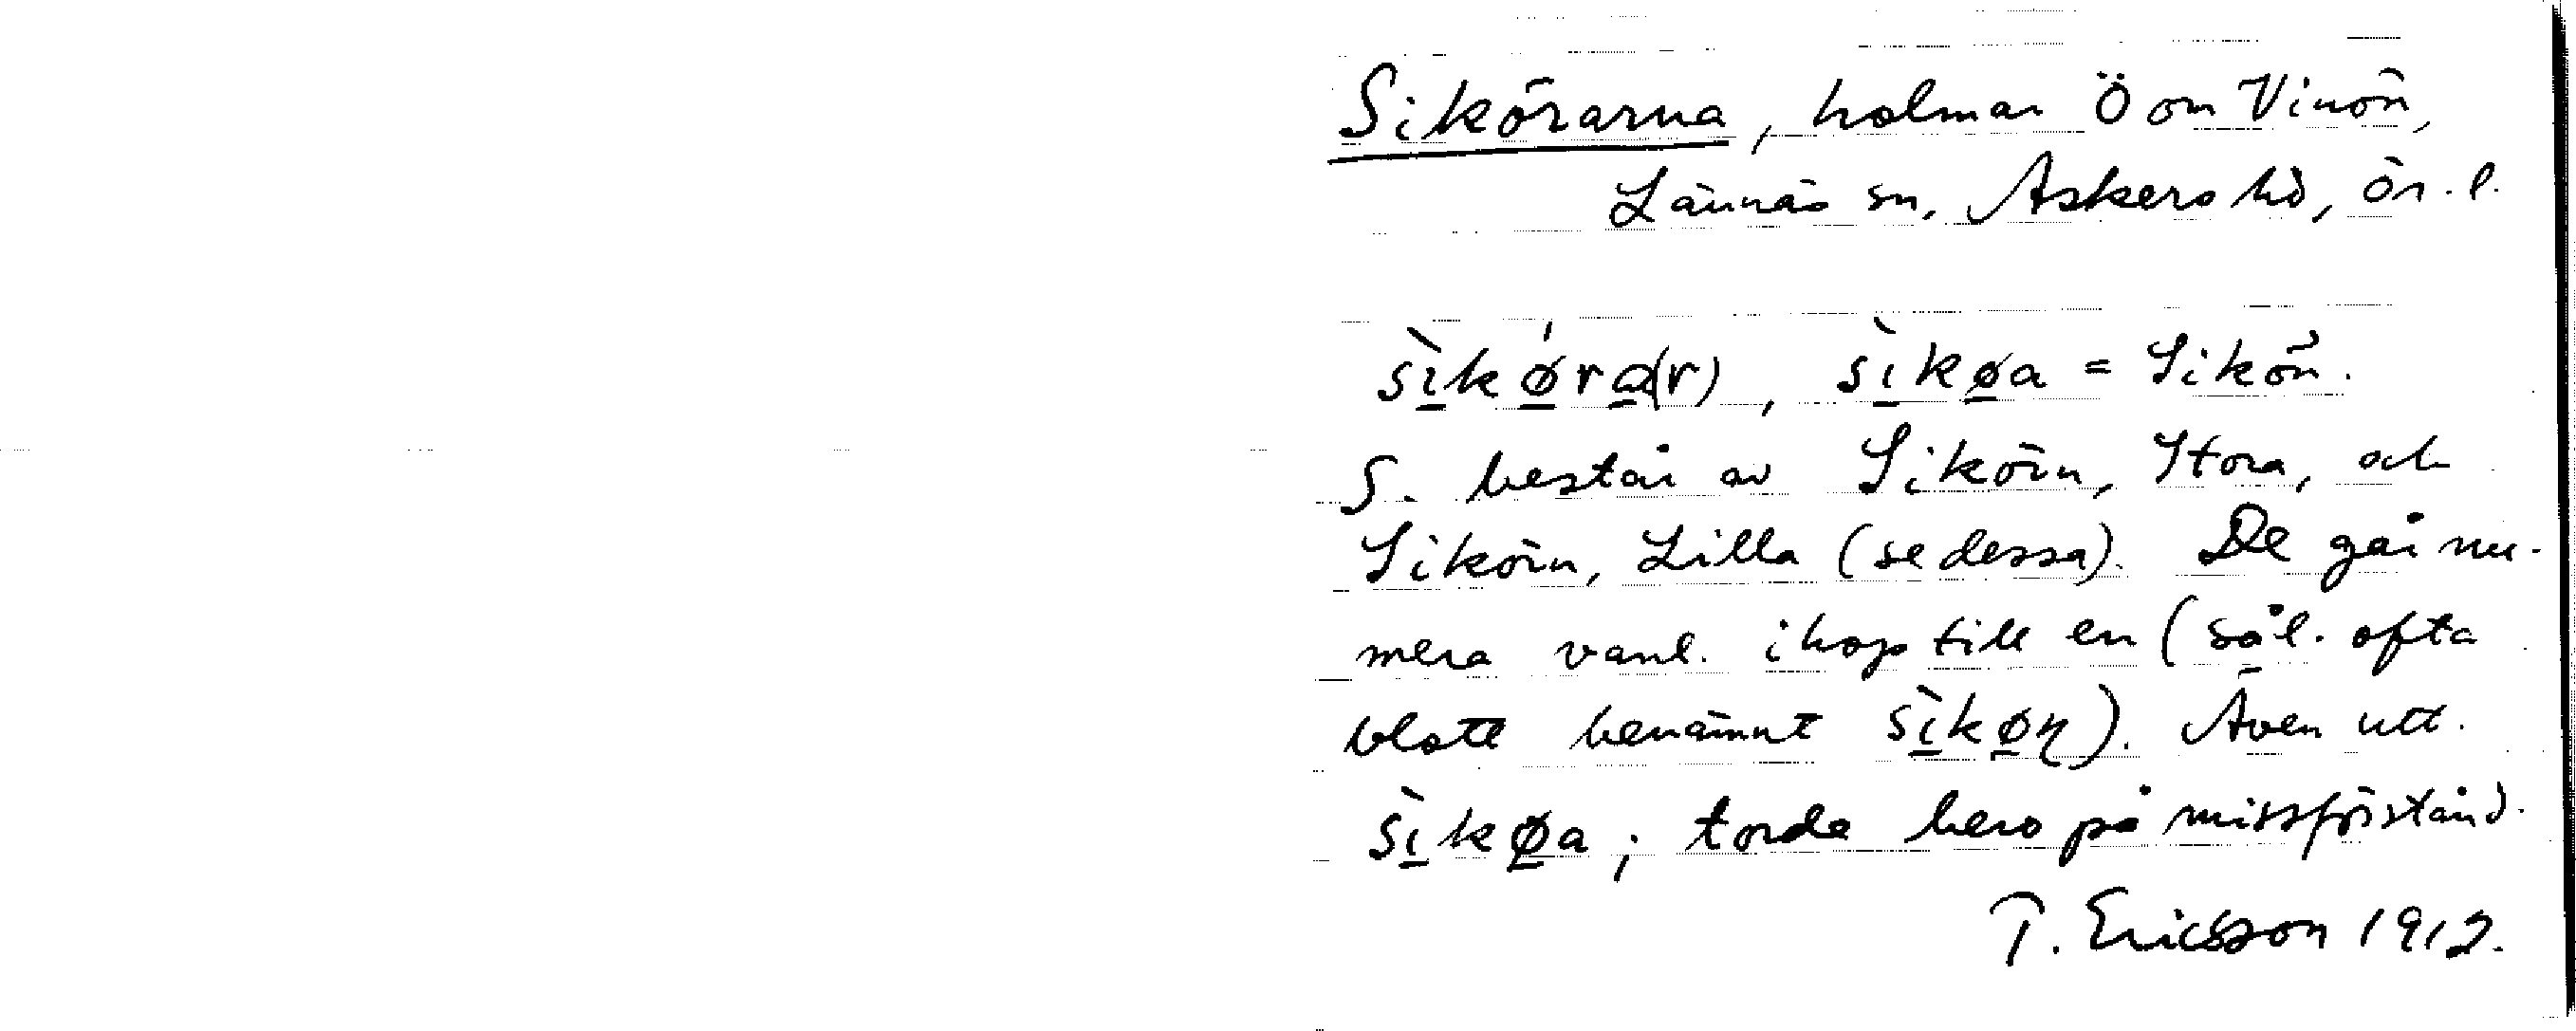 Sikörarna, holmar Ö om Vinön,
Lännäs sn, Askers hd, Ör. l.
sìkǿra(r), sìkøa = Sikön.
S. består av Sikörn, Stora, och
Sikörn, Lilla (se dessa). De går nu-
mera vanl. ihop till en (sål. ofta
blott benämnt sìkøn). Även utt.
sìkøa; torde bero på missförstånd.
T. Ericsson 1912.